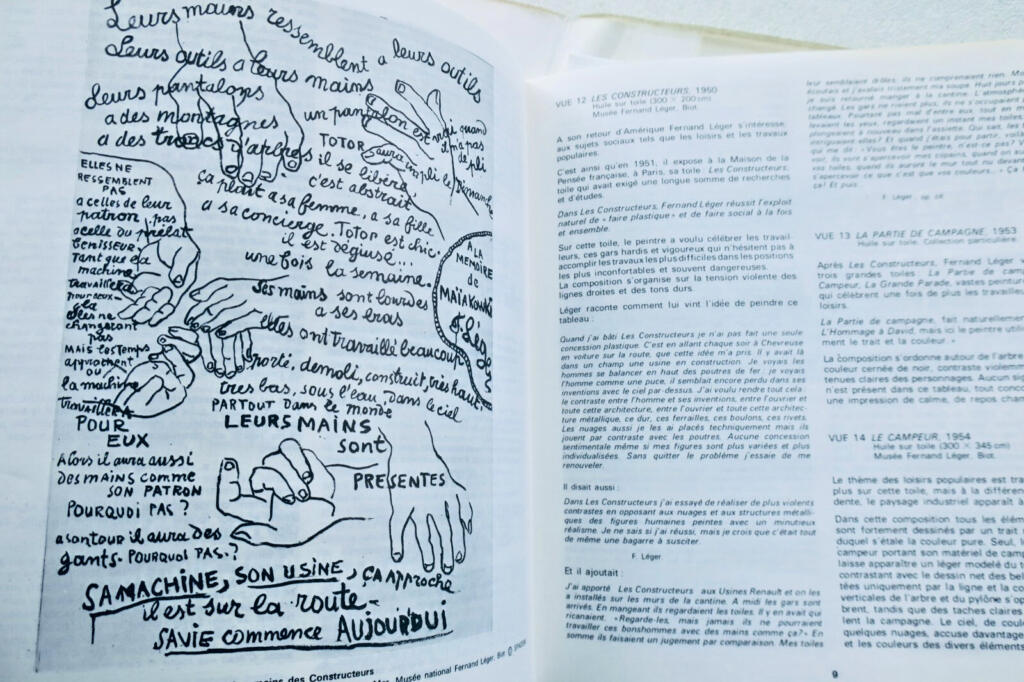 Leurs mains ressemblent a leurs outils
Leurs outils a leurs mains
Leurs pantalons
a des montagnes
a des troncs d'arbres
un pantalon est vrai quand
il n'a pas
de pli
TOTOR aura un pli le Dimanche
il se libère
c'est abstrait
ça plait a sa femme, a sa fille
a sa concierge. TOTOR est chic.
il est déguisé...
une fois la semaine.
ELLES NE
RESSEMBLENT
PAS
a celles de leur
patron, pas
a celle du prélat
benisseur
Tant que la
machine
travaillera
pour eux
ela
elles ne
changeront
pas
MAIS les temps
approchent
ou
la machine
travaillera
POUR
EUX
A LA
MEMOIRE
DE
MAÏAKOWSKI
F. Lége
Ses mains sont lourdes
a ses bras
elles ont travaillé beaucoup
porté, demoli, construit, très haut
tres bas, sous l'eau, dans le ciel
PARTOUT dans le monde
LEURS MAINS
sont
PRESENTES
Alors il aura aussi
DES MAINS comme
SON PATRON
POURQUOI PAS ?
a son tour il aura des
gants. POURQUOI PAS. ?
SA MACHINE, SON USINE, ÇA APPROCHE
il est sur la route.
SA VIE commence AUJOURDUI
mains des Constructeurs
Musée national Fernand Léger, Biot © SPADEM
VUE 12 LES CONSTRUCTEURS, 1950
Huile sur toile (300 × 200 cm)
Musée Fernand Léger, Biot.
A son retour d'Amérique Fernand Léger s'intéresse,
aux sujets sociaux tels que les loisirs et les travaux
populaires.
C'est ainsi qu'en 1951, il expose à la Maison de la
Pensée française, à Paris, sa toile : Les Constructeurs,
toile qui avait exigé une longue somme de recherches
et d'études.
Dans Les Constructeurs, Fernand Léger réussit l'exploit
naturel de « faire plastique » et de faire social à la fois
et ensemble.
Sur cette toile, le peintre a voulu célébrer les travail-
leurs, ces gars hardis et vigoureux qui n'hésitent pas à
accomplir les travaux les plus difficiles dans les positions
les plus inconfortables et souvent dangereuses.
La composition s'organise sur la tension violente des
lignes droites et des tons durs.
Léger raconte comment lui vint l'idée de peindre ce
tableau :
Quand j'ai bâti Les Constructeurs je n'ai pas fait une seule
concession plastique. C'est en allant chaque soir à Chevreuse
en voiture sur la route, que cette idée m'a pris. Il y avait là
dans un champ une usine en construction. Je voyais les
hommes se balancer en haut des poutres de fer ; je voyais
l'homme comme une puce, il semblait encore perdu dans ses
inventions avec le ciel par dessus. J'ai voulu rendre tout cela :
le contraste entre l'homme et ses inventions, entre l'ouvrier et
toute cette architecture, entre l'ouvrier et toute cette architec-
ture métallique, ce dur, ces ferrailles, ces boulons, ces rivets.
Les nuages aussi je les ai placés techniquement mais ils
jouent par contraste avec les poutres. Aucune concession
sentimentale même si mes figures sont plus variées et plus
individualisées. Sans quitter le problème j'essaie de me
renouveler.
Il disait aussi :
Dans Les Constructeurs j'ai essayé de réaliser de plus violents
contrastes en opposant aux nuages et aux structures métalli-
ques des figures humaines peintes avec un minutieux
réalisme. Je ne sais si j'ai réussi, mais je crois que c'était tout
de même une bagarre à susciter.
F. Léger.
Et il ajoutait :
J'ai apporté Les Constructeurs aux Usines Renault et on les
a installés sur les murs de la cantine. A midi les gars sont
arrivés. En mangeant ils regardaient les toiles. Il y en avait qui
ricanaient. «Regarde-les, mais jamais ils ne pourraient
travailler ces bonshommes avec des mains comme ça?» En
somme ils faisaient un jugement par comparaison. Mes toiles
leur semblaient drôles, ils ne comprenaient rien. Mo
écoutais et j'avalais tristement ma soupe. Huit jours p
je suis retourné manger à la cantine. L'atmosphère
changé. Les gars ne riaient plus, ils ne s'occupaient
tableaux. Pourtant pas mal d'entre eux, tout en m
levaient les yeux, regardaient un instant mes toiles,
plongeaient à nouveau dans l'assiette.
F. Léger, op. cit.
VUE 13 LA PARTIE DE CAMPAGNE, 1953
Huile sur toile. Collection particulière.
Après Les Constructeurs, Fernand Léger v
trois grandes toiles : La Partie de camp
Campeur, La Grande Parade, vastes peintur
qui célèbrent une fois de plus les travailleu
loisirs.
La Partie de campagne, fait naturellemen
L'Hommage à David, mais ici le peintre utili
ment le trait et la couleur. »
La composition s'ordonne autour de l'arbre
couleur cernée de noir, contraste violemment
tenues claires des personnages. Aucun s
n'est présent dans ce tableau, tout conco
une impression de calme, de repos cham
VUE 14 LE CAMPEUR, 1954
Huile sur toile (300 × 345 cm)
Musée Fernand Léger, Biot.
Le thème des loisirs populaires est tra
plus sur cette toile, mais à la différen
dente, le paysage industriel apparaît à
Dans cette composition tous les élém
sont fortement dessinés par un trait
duquel s'étale la couleur pure. Seul, l
campeur portant son matériel de camp
laisse apparaître un léger modelé du t
contrastant avec le dessin net des bel
tées uniquement par la ligne et la co
verticales de l'arbre et du pylône s'op
brent, tandis que des taches claires
lent la campagne. Le ciel, de coule
quelques nuages, accuse davantage
et les couleurs des divers éléments
9